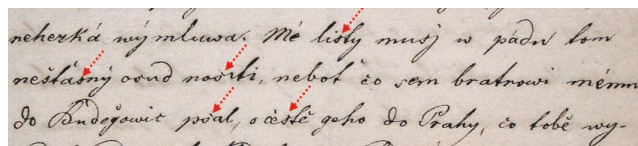 nehezká wýmluwa. Mé listy musý w pádu tom
nešťásný osud nositi, neboť čo sem bratrowi mému
do Buděgowic psal, o čestě geho do Prahy, čo tobě wy-